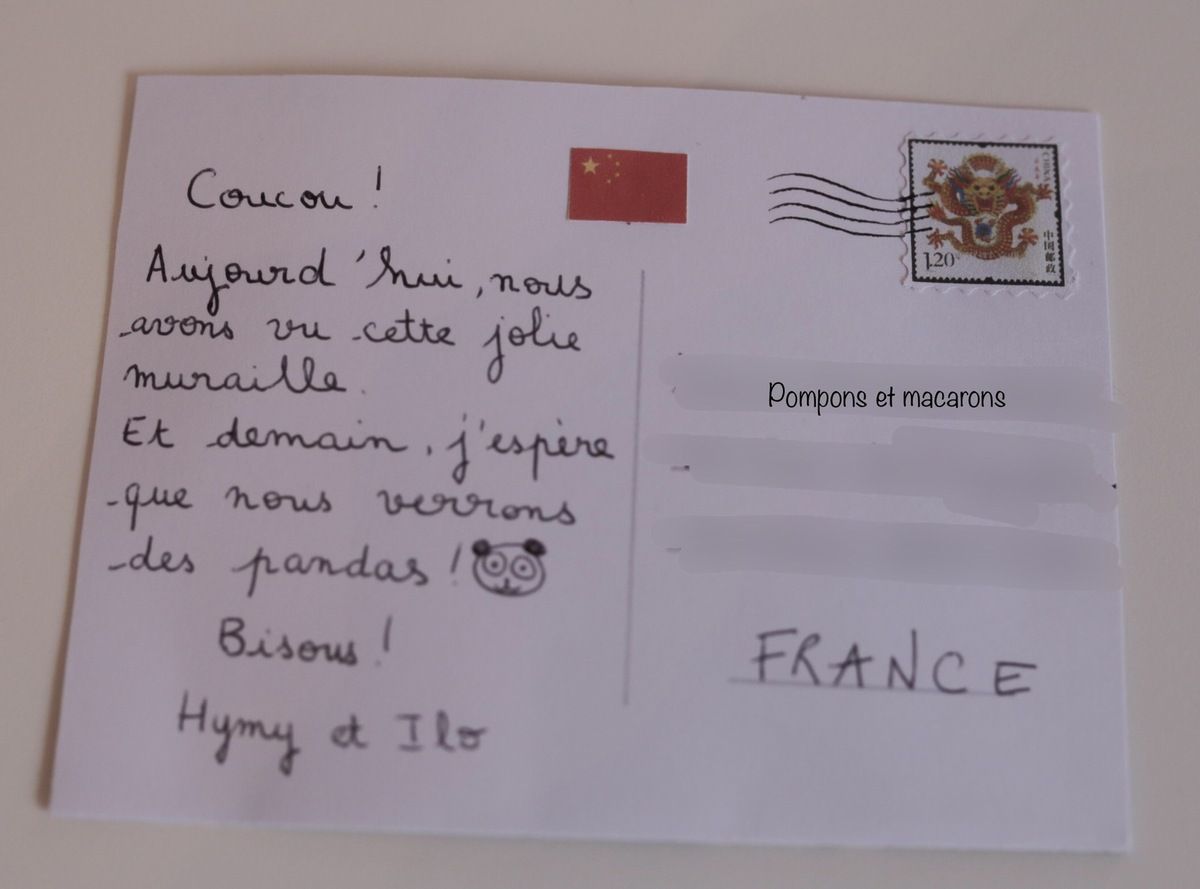 Coucou !
Aujourd'hui, nous
avons vu cette jolie
muraille.
Et demain, j'espère
que nous verrons
des pandas !
Bisous !
Hymy et Ilo
CHINA
中国邮政
1.20
Pompons et macarons
FRANCE